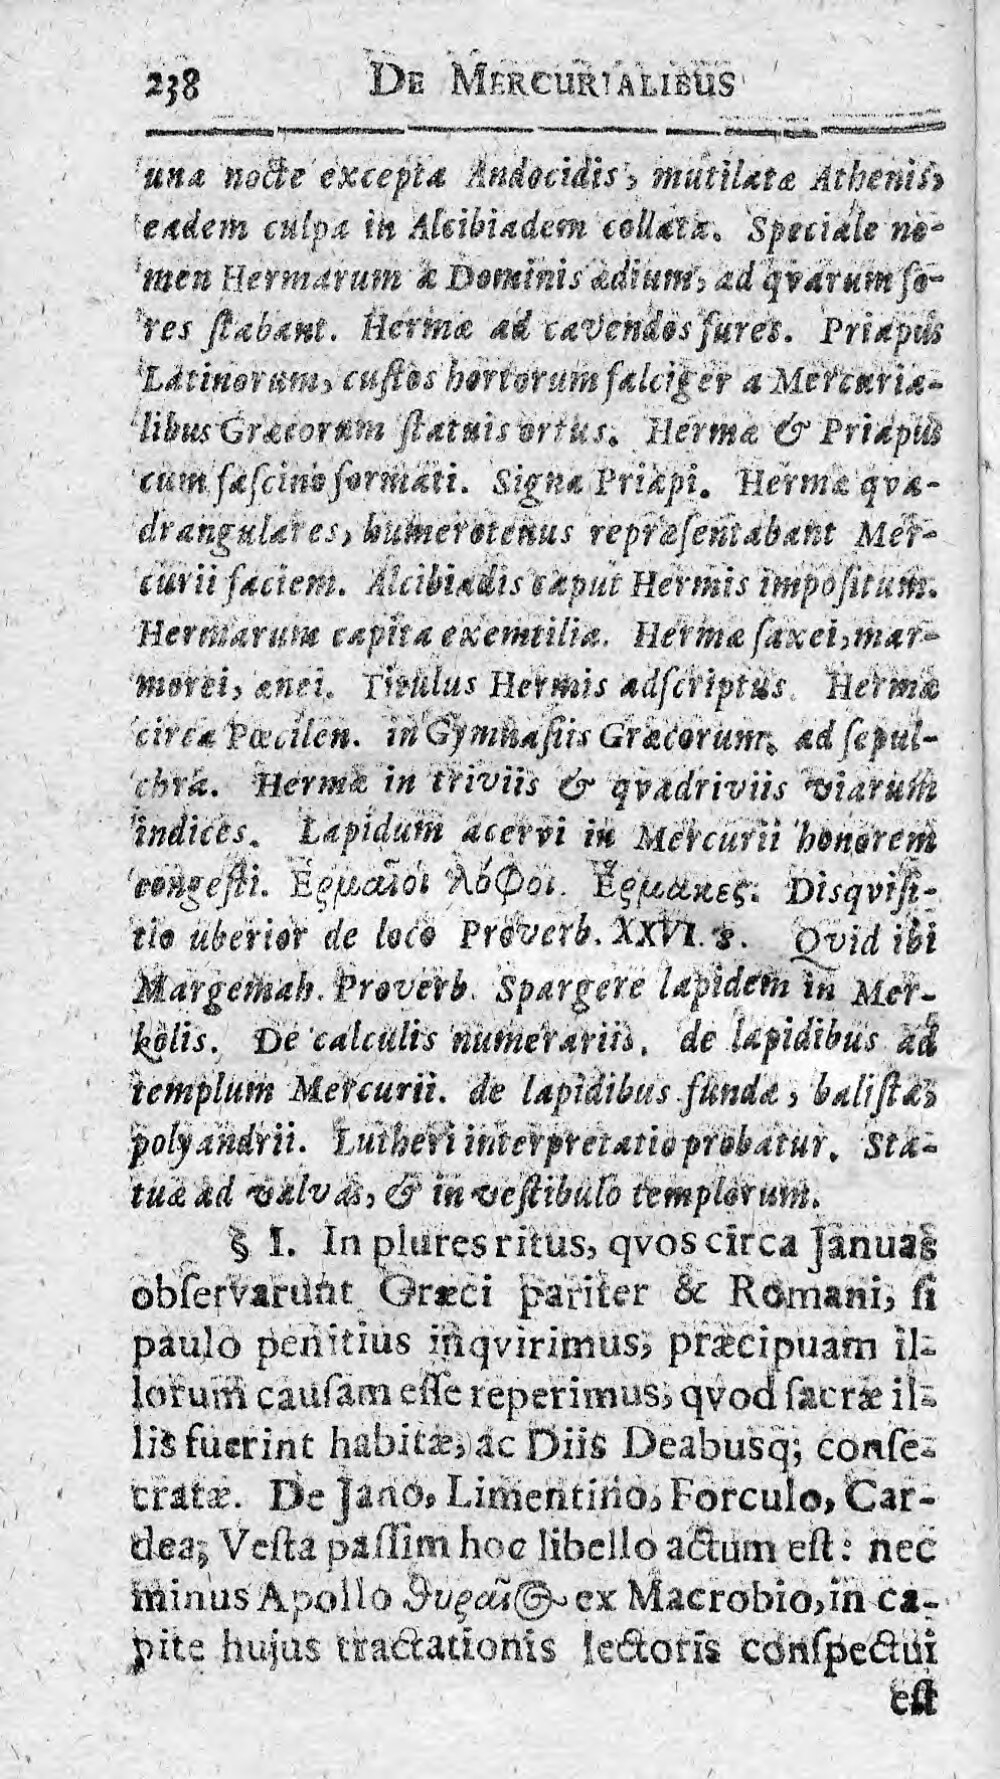 238 DE MERCURIALIBUS
una nocte excepta Andocidis, mutilatæ Athenis,
eadem culpa in Alcibiadem collata. Speciale no-
men Hermarum a Dominis ædium, ad qvarum fo-
res ſtabant. Hermæ ad cavendos fures. Priapus
Latinorum, cuſtos hortorum falciger a Mercuria-
libus Græcorum ſtatuis ortus. Hermæ & Priapus
cum faſcino formati. Signa Priapi. Hermæ qva-
drangulares, humerotenus repræſentabant Mer-
curii faciem. Alcibiadis caput Hermis impoſitum.
Hermarum capita exemtilia. Hermæ ſaxei, mar-
morei, ænei. Titulus Hermis adſcriptus. Hermæ
circa Pœcilen. in Gymnaſiis Græcorum. ad ſepul-
chra. Hermæ in triviis & qvadriviis viarum
indices. Lapidum acervi in Mercurii honorem
congeſti. Ἑρμαῖοι λόφοι. Ἕρμακες. Disqviſi-
tio uberior de loco Proverb. XXVI. 8. Qvid ibi
Margemah. Proverb. Spargere lapidem in Mer-
kolis. De calculis numerariis. de lapidibus ad
templum Mercurii. de lapidibus fundæ, baliſtæ,
polyandrii. Lutheri interpretatio probatur. Sta-
tuæ ad valvas, & in veſtibulo templorum.
§ I. In plures ritus, qvos circa Januas
obſervarunt Græci pariter & Romani, ſi
paulo penitius inqvirimus, præcipuam il-
lorum cauſam eſſe reperimus, qvod ſacræ il-
lis fuerint habitæ, ac Diis Deabusq; conſe-
cratæ. De Jano, Limentino, Forculo, Car-
dea, Veſta paſſim hoc libello actum eſt: nec
minus Apollo θυραῖος ex Macrobio, in ca-
pite hujus tractationis lectoris conſpectui
eſt